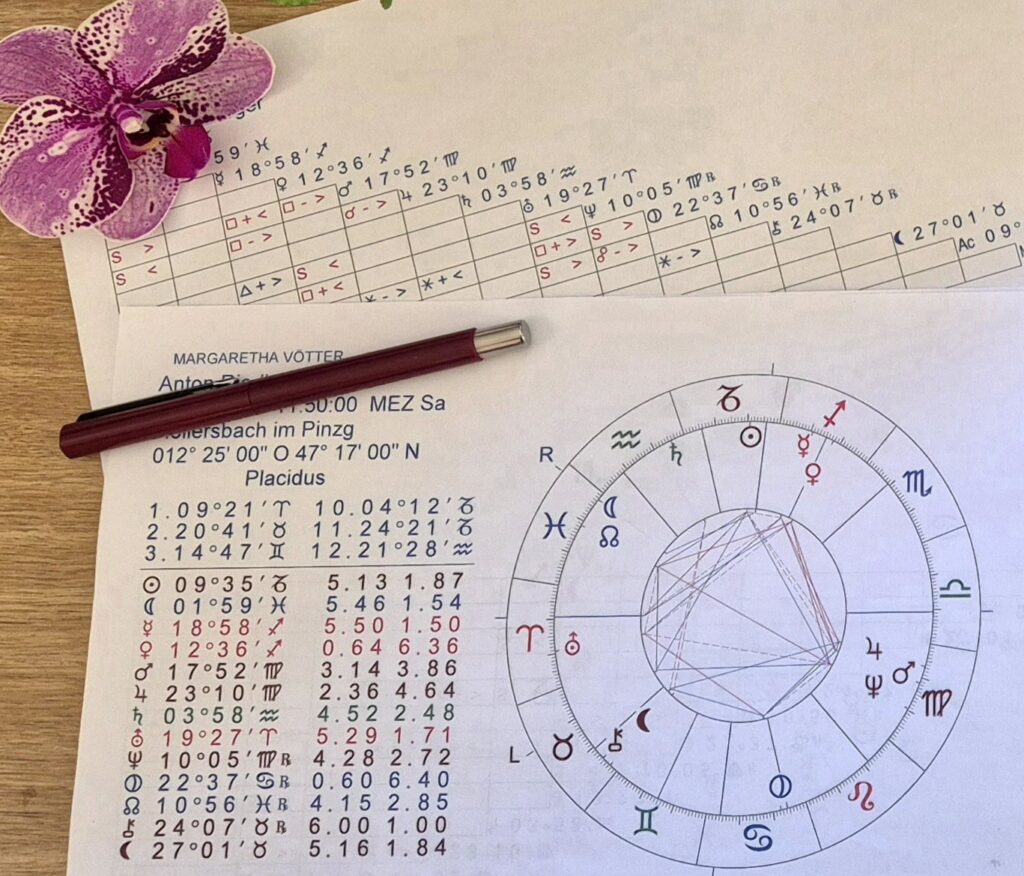 ger
59'♓
☿ 18°58'♐
♀ 12°36'♐
♂ 17°52'♍
♃ 23°10'♍
♄ 03°58'♒
⛢ 19°27'♈
♆ 10°05'♍℞
22°37'♋℞
☊ 10°56'♓℞
⚷ 24°07'♉℞
⚸ 27°01'♉
Ac 09°
□+< □-> ♂-> S < S >
S > □-> □+> ☍-> ⚹->
S < △+> S < ⚹+< S >
□+< ⚹->
MARGARETHA VÖTTER
Anton
50:00 MEZ Sa
llersbach im Pinzg
012° 25' 00" O 47° 17' 00" N
Placidus
1. 09°21'♈ 10. 04°12'♑
2. 20°41'♉ 11. 24°21'♑
3. 14°47'♊ 12. 21°28'♒
☉ 09°35'♑ 5.13 1.87
☾ 01°59'♓ 5.46 1.54
☿ 18°58'♐ 5.50 1.50
♀ 12°36'♐ 0.64 6.36
♂ 17°52'♍ 3.14 3.86
♃ 23°10'♍ 2.36 4.64
♄ 03°58'♒ 4.52 2.48
⛢ 19°27'♈ 5.29 1.71
♆ 10°05'♍℞ 4.28 2.72
22°37'♋℞ 0.60 6.40
☊ 10°56'♓℞ 4.15 2.85
⚷ 24°07'♉℞ 6.00 1.00
⚸ 27°01'♉ 5.16 1.84
R
L